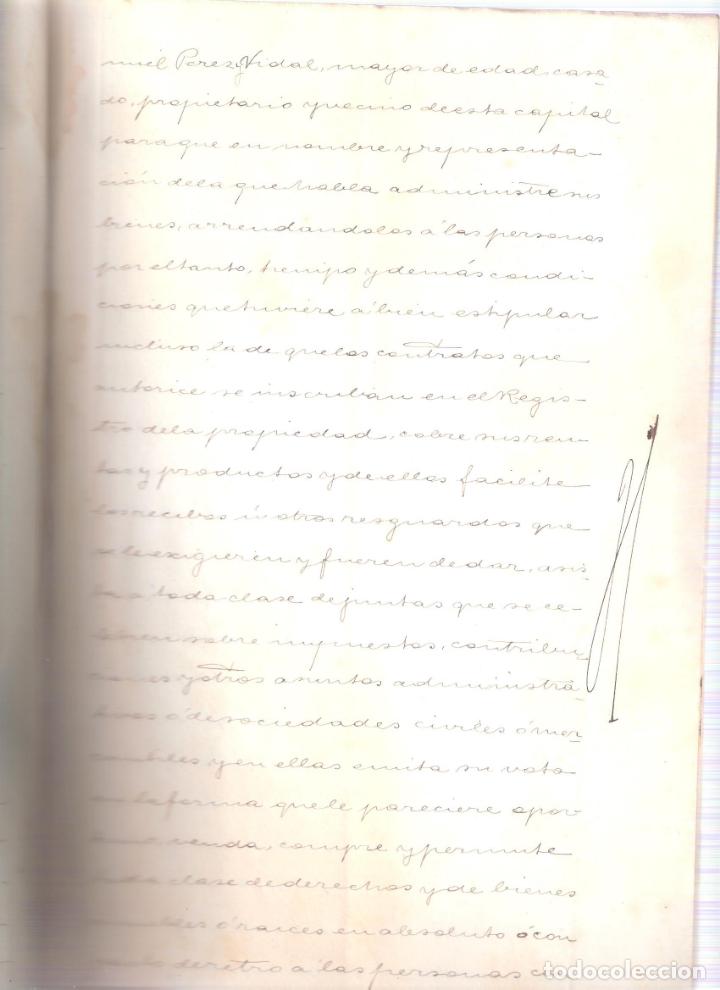 nuel Perez y Vidal, mayor de edad, casa-
do, propietario y vecino de esta capital
para que en nombre y representa-
ción de la que habla administre sus
bienes, arrendandolos á las personas
por el tanto, tiempo y demás condi-
ciones que tuviere á bien estipular
incluso la de que los contratos que
autorice se inscriban en el Regis-
tro de la propiedad, cobre sus ren-
tas y productos y de ellos facilite
los recibos ú otros resguardos que
se le exigieren y fueren de dar, asis-
ta á toda clase de juntas que se ce-
lebren sobre impuestos, contribu-
ciones y otros asuntos administra-
tivos ó de sociedades civiles ó mer-
cantiles y en ellas emita su voto
en la forma que le pareciere opor
tuno, venda, compre y permute
toda clase de derechos y de bienes
muebles ó raices en absoluto ó con
pacto de retro á las personas
todocoleccion